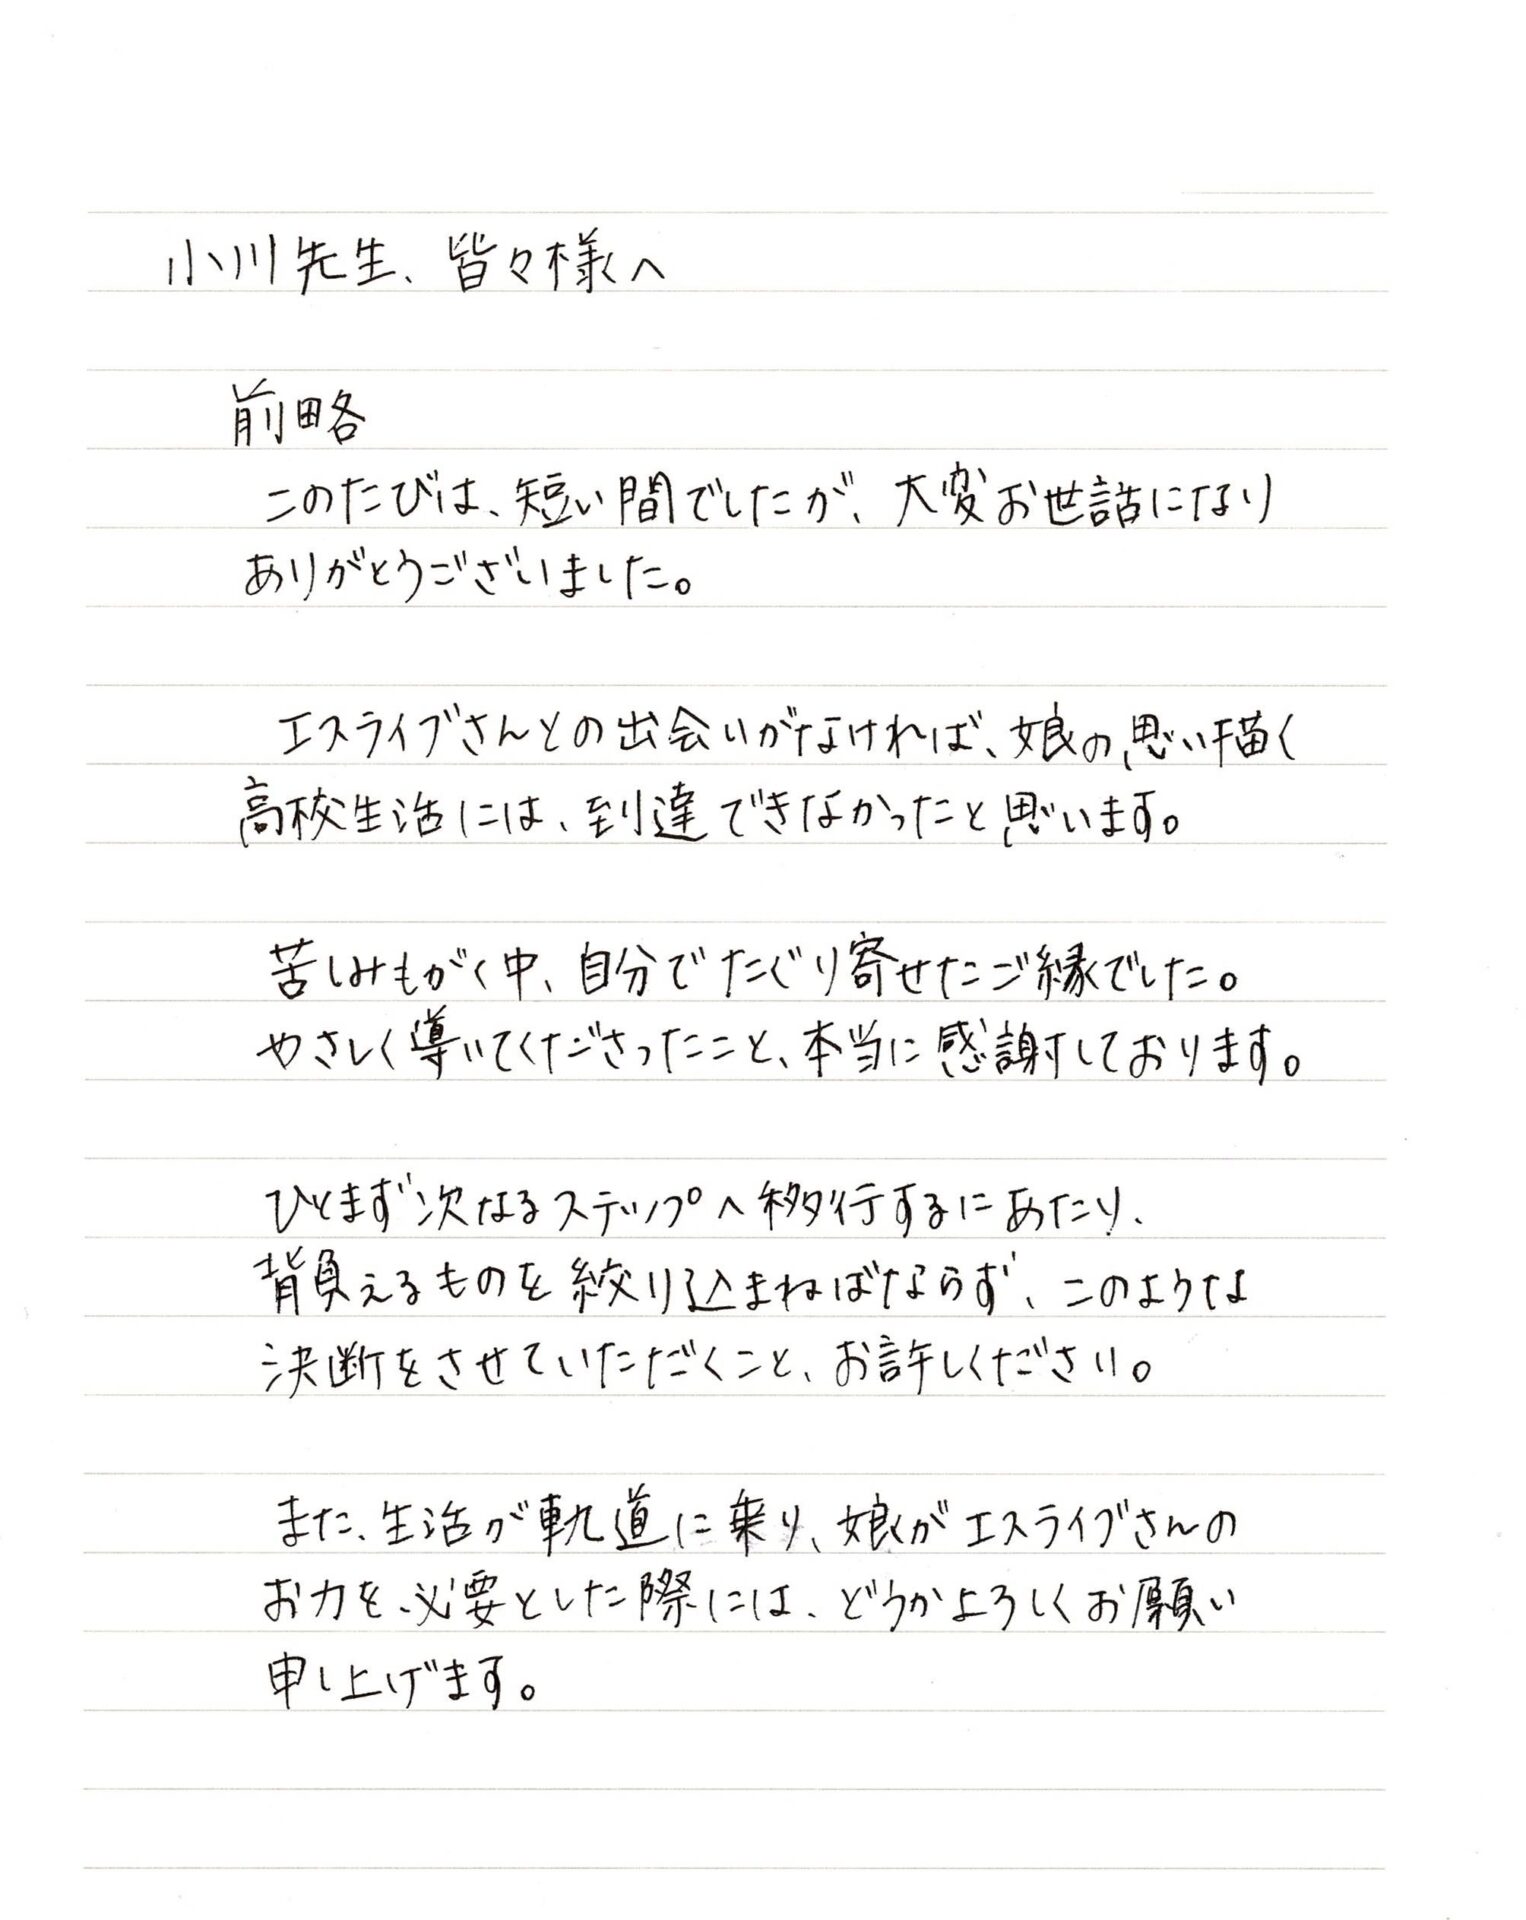 小川先生、皆々様へ
前略
このたびは、短い間でしたが、大変お世話になり
ありがとうございました。
エスライブさんとの出会いがなければ、娘の思い描く
高校生活には、到達できなかったと思います。
苦しみもがく中、自分でたぐり寄せたご縁でした。
やさしく導いてくださったこと、本当に感謝しております。
ひとまず次なるステップへ移行するにあたり、
背負えるものを絞り込まねばならず、このような
決断をさせていただくこと、お許しください。
また、生活が軌道に乗り、娘がエスライブさんの
お力を必要とした際には、どうかよろしくお願い
申し上げます。